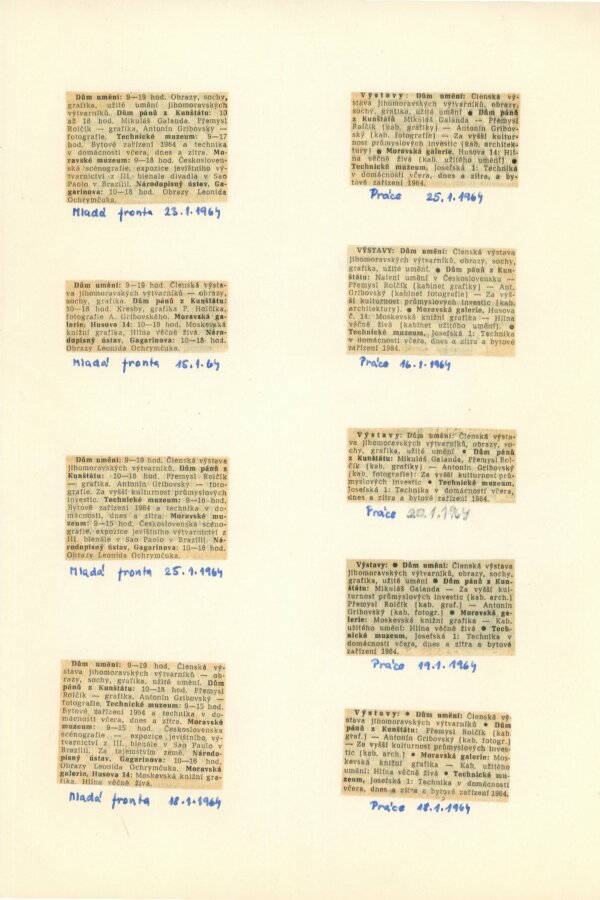 Dům umění: 9—19 hod. Obrazy, sochy,
grafika, užité umění jihomoravských
výtvarníků. Dům pánů z Kunštátu: 10
až 18 hod. Mikuláš Galanda, Přemysl
Rolčík — grafika, Antonín Gribovský —
fotografie. Technické muzeum: 9—17
hod. Bytové zařízení 1964 a technika
v domácnosti včera, dnes a zítra. Mo-
ravské muzeum: 9—18 hod. Českosloven-
ská scénografie, expozice jevištního vý-
tvarnictví z III. bienále divadla v Sao
Paolo v Brazílii. Národopisný ústav, Ga-
garinova: 10—18 hod. Obrazy Leonida
Ochrymčuka.
Mladá fronta 23.1.1964
Dům umění: 9—19 hod. Členská výsta-
va jihomoravských výtvarníků — obrazy,
sochy, grafika. Dům pánů z Kunštátu:
10—18 hod. Kresby, grafika P. Rolčíka,
fotografie A. Gribovského. Moravská ga-
lerie, Husova 14: 10—18 hod. Moskevská
knižní grafika, Hlína věčně živá. Náro-
dopisný ústav, Gagarinova: 10—18 hod.
Obrazy Leonida Ochrymčuka.
Mladá fronta 15.1.64
Dům umění: 9—19 hod. Členská výstava
jihomoravských výtvarníků, Dům pánů z
Kunštátu: 10—18 hod. Přemysl Rolčík
— grafika, Antonín Gribovský — foto-
grafie. Za vyšší kulturnost průmyslových
investic. Technické muzeum: 9—16 hod.
Bytové zařízení 1964 a technika v do-
mácnosti, dnes a zítra. Moravské mu-
zeum: 9—15 hod. Československá scéno-
grafie, expozice jevištního výtvarnictví z
III. bienále v Sao Paolo v Brazílii. Ná-
rodopisný ústav, Gagarinova: 10—18 hod.
Obrazy Leonida Ochrymčuka.
Mladá fronta 25.1.1964
Dům umění: 9—19 hod. Členská vý-
stava jihomoravských výtvarníků — ob-
razy, sochy, grafika, užité umění, Dům
pánů z Kunštátu: 10—18 hod. Přemysl
Rolčík — grafika, Antonín Gribovský —
fotografie. Technické muzeum: 9—15 hod.
Bytové zařízení 1964 a technika v do-
mácnosti včera, dnes a zítra. Moravské
muzeum: 9—15 hod. Československá
scénografie — expozice jevištního, vý-
tvarnictví z III. bienále v Sao Paulo v
Brazílii. Za tajemstvím země. Národo-
pisný ústav, Gagarinova: 10—16 hod.
Obrazy Leonida Ochrymčuka. Moravská
galerie, Husova 14: Moskevská knižní gra-
fika. Hlína věčně živá.
Mladá fronta 18.1.1964
Výstavy: Dům umění: Členská vý-
stava jihomoravských výtvarníků, obrazy,
sochy, grafika, užité umění ● Dům pánů
z Kunštátů Mikuláš Galanda — Přemysl
Rolčík (kab. grafiky) — Antonín Gribov-
ský (kab. fotografie) — Za vyšší kultur-
nost průmyslových investic (kab. architek-
tury) ● Moravská galerie, Husova 14: Hlí-
na věčně živá (kab. užitého umění) ●
Technické muzeum, Josefská 1: Technika
v domácnosti včera, dnes a zítra, a by-
tové zařízení 1964.
Práce 25.1.1964
VÝSTAVY: Dům umění: Členská výstava
jihomoravských výtvarníků, obrazy, sochy,
grafika, užité umění. ● Dům pánů z Kun-
štátu: Naivní umění v Československu —
Přemysl Rolčík (kabinet grafiky) — Ant.
Gribovský (kabinet fotografie) — Za vyš-
ší kulturnost průmyslových investic (kab.
architektury). ● Moravská galerie, Husova
č. 14: Moskevská knižní grafika — Hlína
věčně živá (kabinet užitého umění). ●
Technické muzeum, Josefská 1: Technika
v domácnosti včera, dnes a zítra a bytové
zařízení 1964.
Práce 16.1.1964
Výstavy: Dům umění: Členská výsta-
va jihomoravských výtvarníků, obrazy, so-
chy, grafika, užité umění ● Dům pánů
z Kunštátu: Mikuláš Galanda, Přemysl Rol-
čík (kab. grafiky) — Antonín Gribovský
(kab. fotografie): Za vyšší kulturnost prů-
myslových investic ● Technické muzeum,
Josefská 1: Technika v domácnosti včera,
dnes a zítra a bytové zařízení 1964.
Práce 22.1.1964
Výstavy: ● Dům umění: Členská výstava
jihomoravských výtvarníků, obrazy, sochy,
grafika, užité umění ● Dům pánů z Kun-
štátu: Mikuláš Galanda — Za vyšší kul-
turnost průmyslových investic (kab. arch.)
Přemysl Rolčík (kab. graf.) — Antonín
Gribovský (kab. fotogr.) ● Moravská ga-
lerie: Moskevská knižní grafika — Kab.
užitého umění: Hlína věčně živá ● Tech-
nické muzeum, Josefská 1: Technika v
domácnosti včera, dnes a zítra a bytové
zařízení 1964.
Práce 19.1.1964
Výstavy: ● Dům umění: Členská vý-
stava jihomoravských výtvarníků ● Dům
pánů z Kunštátu: Přemysl Rolčík (kab.
graf.) — Antonín Gribovský (kab. fotogr.)
— Za vyšší kulturnost průmyslových inves-
tic (kab. arch.) ● Moravská galerie: Mos-
kevská knižní grafika — Kab. užitého
umění: Hlína věčně živá ● Technické mu-
zeum, Josefská 1: Technika v domácnosti
včera, dnes a zítra a bytové zařízení 1964.
Práce 18.1.1964